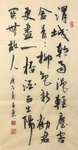 渭城朝雨浥輕塵
客舍青青柳色新勸君
更盡一杯酒西出陽
關無故人